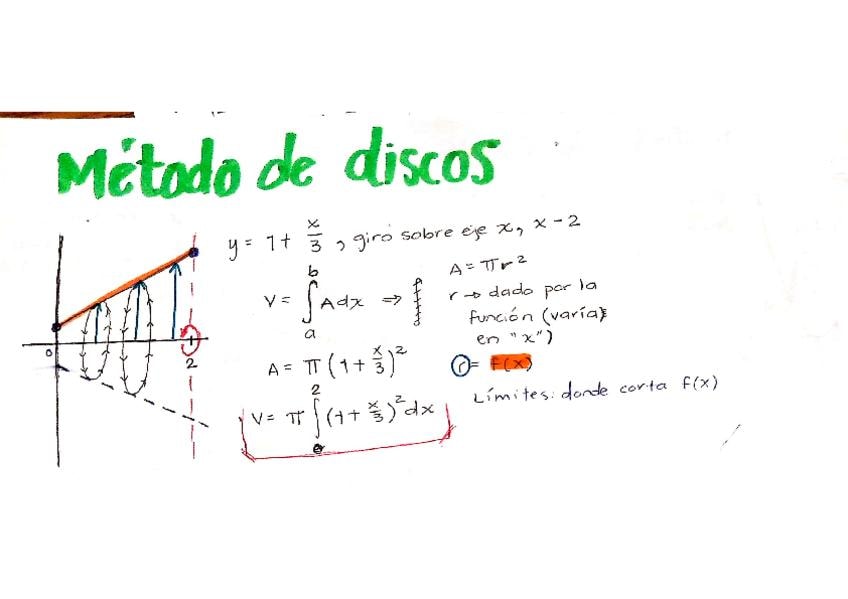 Método de discos
y = 1 + x/3 , giro sobre eje x, x - 2
V = ∫ₐᵇ A dx ⇒
A = πr²
r → dado por la
función (varía
en "x")
A = π(1 + x/3)²
r = f(x)
V = π ∫₀² (1 + x/3)² dx
Límites: donde corta f(x)
0
2